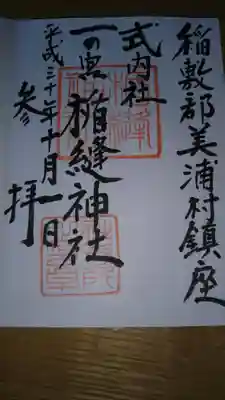 稲敷郡美浦村鎮座
式内社
一の宮 楯縫神社
平成三十年十月一日
参拝